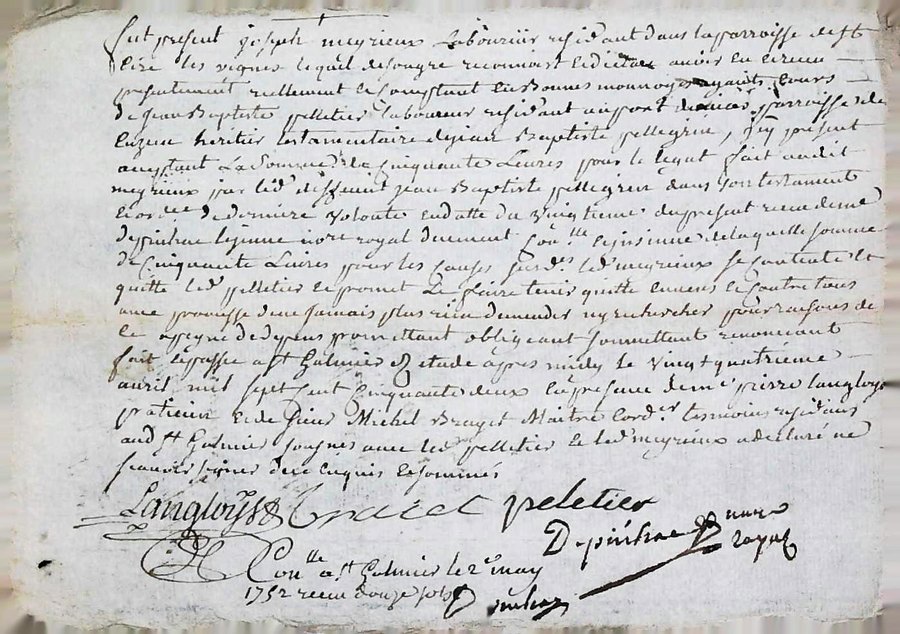 fut present joseph meyrieux laboureur residant dans la parroisse de st
cire les vignes lequel de son gre reconnoit
presentement reellement comptant en bonnes monnoyes ayants cours
de jean Baptiste pelletier laboureur residant au port parroisse de
heritier testamentaire de jean Baptiste pellegrin, present
acceptant La Somme de Cinquante Livres pour le legat fait audit
meyrieux par led. deffunt jean Baptiste pellegrin dans son testament
et ord.ce de derniere volonte en datte du vingtieme du present receu de me
Depinhac le jeune no.re royal duement Con.lle de laquelle somme
de Cinquante Livres pour les Causes surd.s led. meyrieux se Contente et
quitte led. pelletier et promet Le faire tenir quitte envers et Contre tous
avec promesse de ne jamais plus rien demander ny rechercher pour raisons de
ce a peyne de depens promettant obligeant soumettant renoncant
fait et passe a st Galmier etude apres midy le vingt quatrieme
avril mil sept cent Cinquante deux en presence de me pierre langloys
praticien et de sieur Michel Brayet Maitre Cord.er temoins residans
aud. st Galmier soignes avec led. pelletier et led. meyrieux a declaré ne
scavoir signer de ce enquis et sommés
Langloys Braiet peletier
Depinhac no.re royal
Con.lle a st Galmier le 2e may
1752 receu douze sols